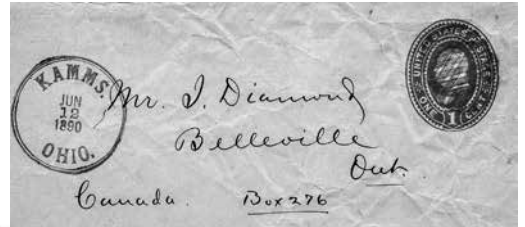 KAMMS.
JUN
12
1890
OHIO.
UNITED STATES
1
Mr. I. Diamond
Belleville
Ont.
Canada. Box 276